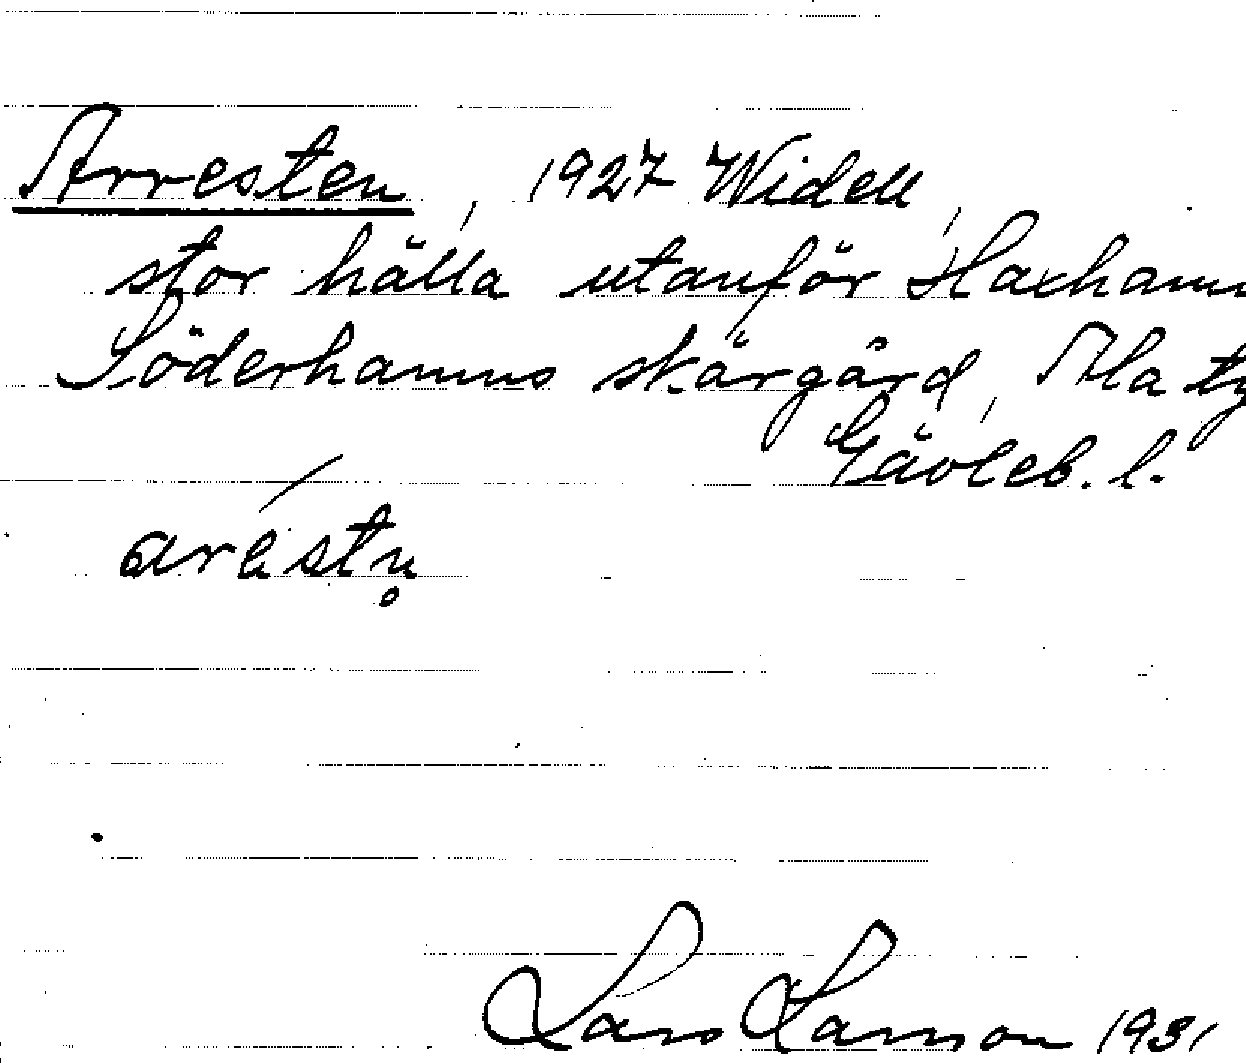 Arresten, 1927 Widell,
stor hälla utanför Haxhamn
Söderhamns skärgård, Ala t
Gävleb. l.
arèstn̥
Lars Larsson 1931